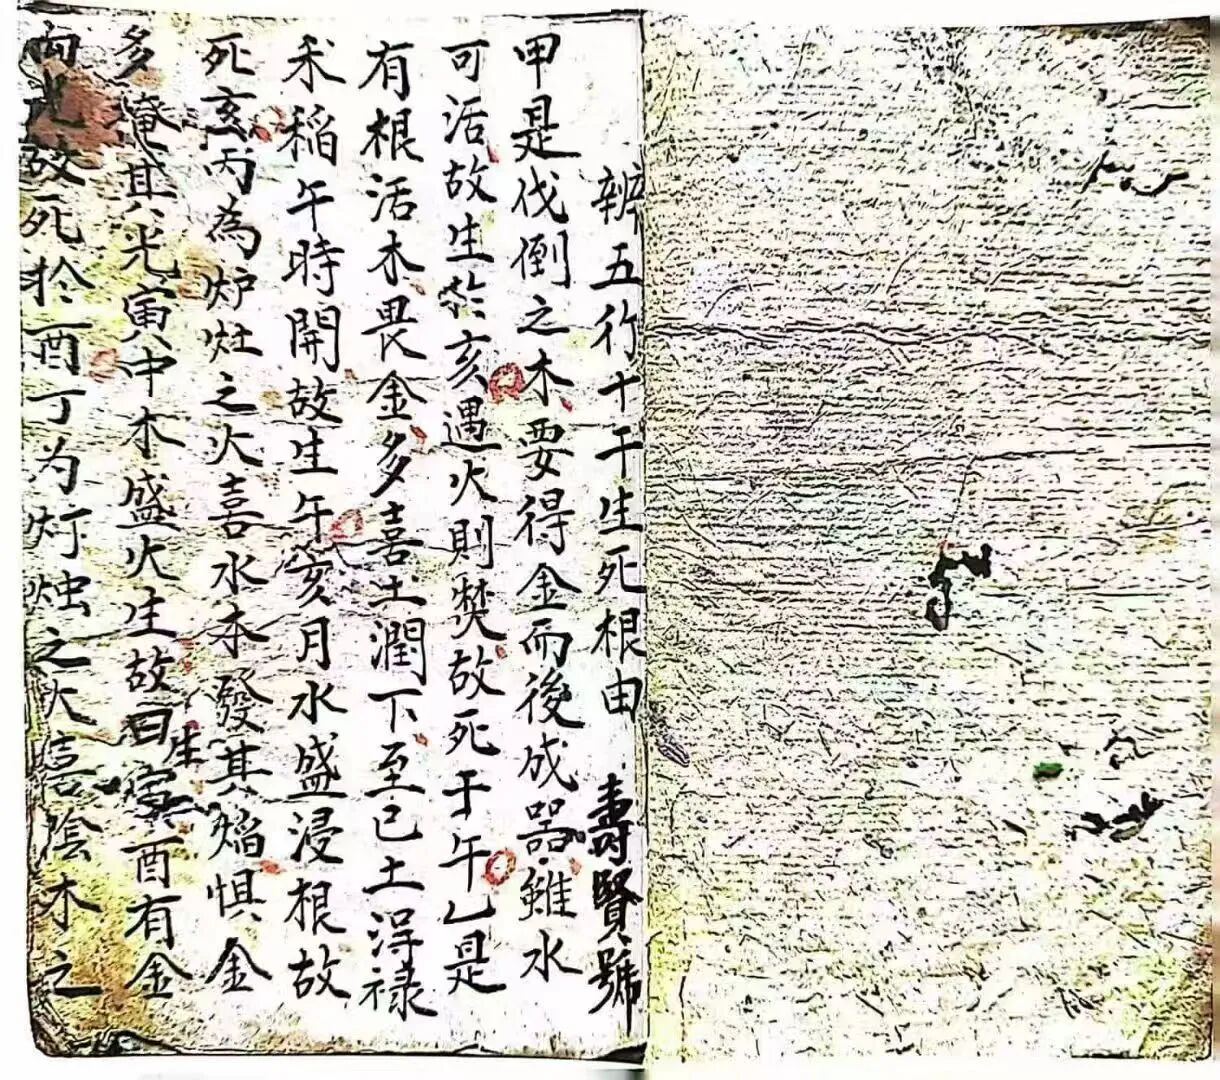 辨五行十干生死根由 壽賢號
甲是伐倒之木要得金而後成器雖水
可活故生於亥遇火則焚故死于午乙是
有根活木畏金多喜土潤下至已土得禄
禾稲午時開故生午亥月水盛浸根故
死亥丙為炉灶之火喜水本發其焰惧金
多掩其光寅中木盛火生故曰生寅酉有金
故死於酉丁为灯烛之火喜陰木之